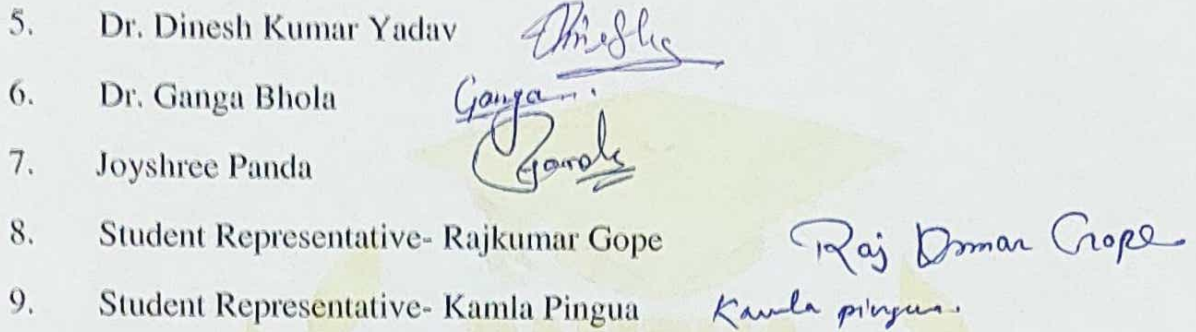 5. Dr. Dinesh Kumar Yadav Dinesh
6. Dr. Ganga Bhola Ganga
7. Joyshree Panda
8. Student Representative- Rajkumar Gope Raj Kumar Gope
9. Student Representative- Kamla Pingua Kamla pingua.